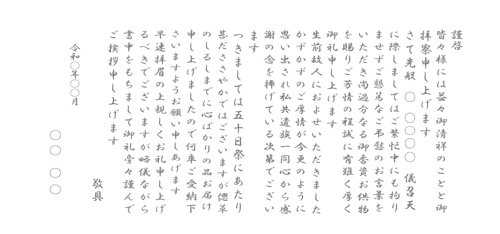 謹啓
皆々様には益々御清祥のことと御
拝察申し上げます
さて先般 〇 〇〇〇〇 儀召天
に際しましてはご繁忙中にも拘り
ませずご懇篤なご弔慰のお言葉を
いただき尚過分なる御香資お供物
を賜りご芳情の程誠に有難く厚く
御礼申し上げます
生前故人におよせいただきました
かずかずのご厚情が今更のように
思い出され私共遺族一同心から感
謝の念を捧げている次第でござい
ます
つきましては五十日祭にあたり
甚だささやかではございますが偲草
のしるしまでに心ばかりの品お届け
申し上げましたので何卒ご愛納下
さいますようお願い申しあげます
早速拝眉の上親しくお礼申し上げ
るべきでございますが略儀ながら
書中をもちまして御礼旁々謹んで
ご挨拶申し上げます
敬具
令和〇年〇〇月
〇〇 〇〇